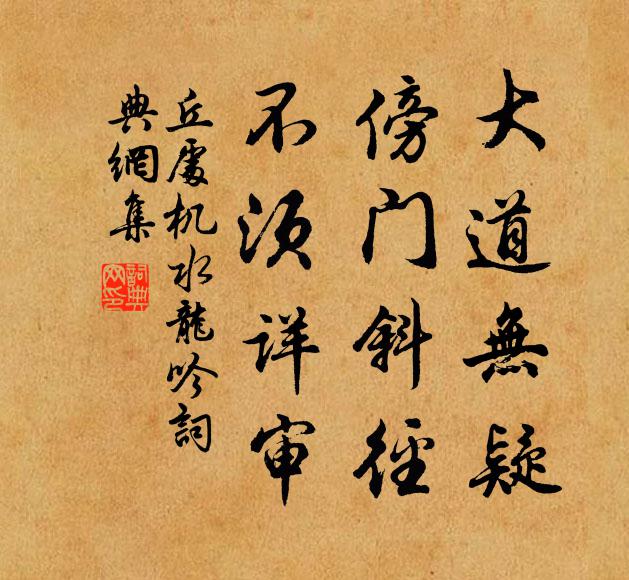 大道無疑
傍門斜徑
不須詳审
丘處机水龍吟詞
典網集
詞典網印